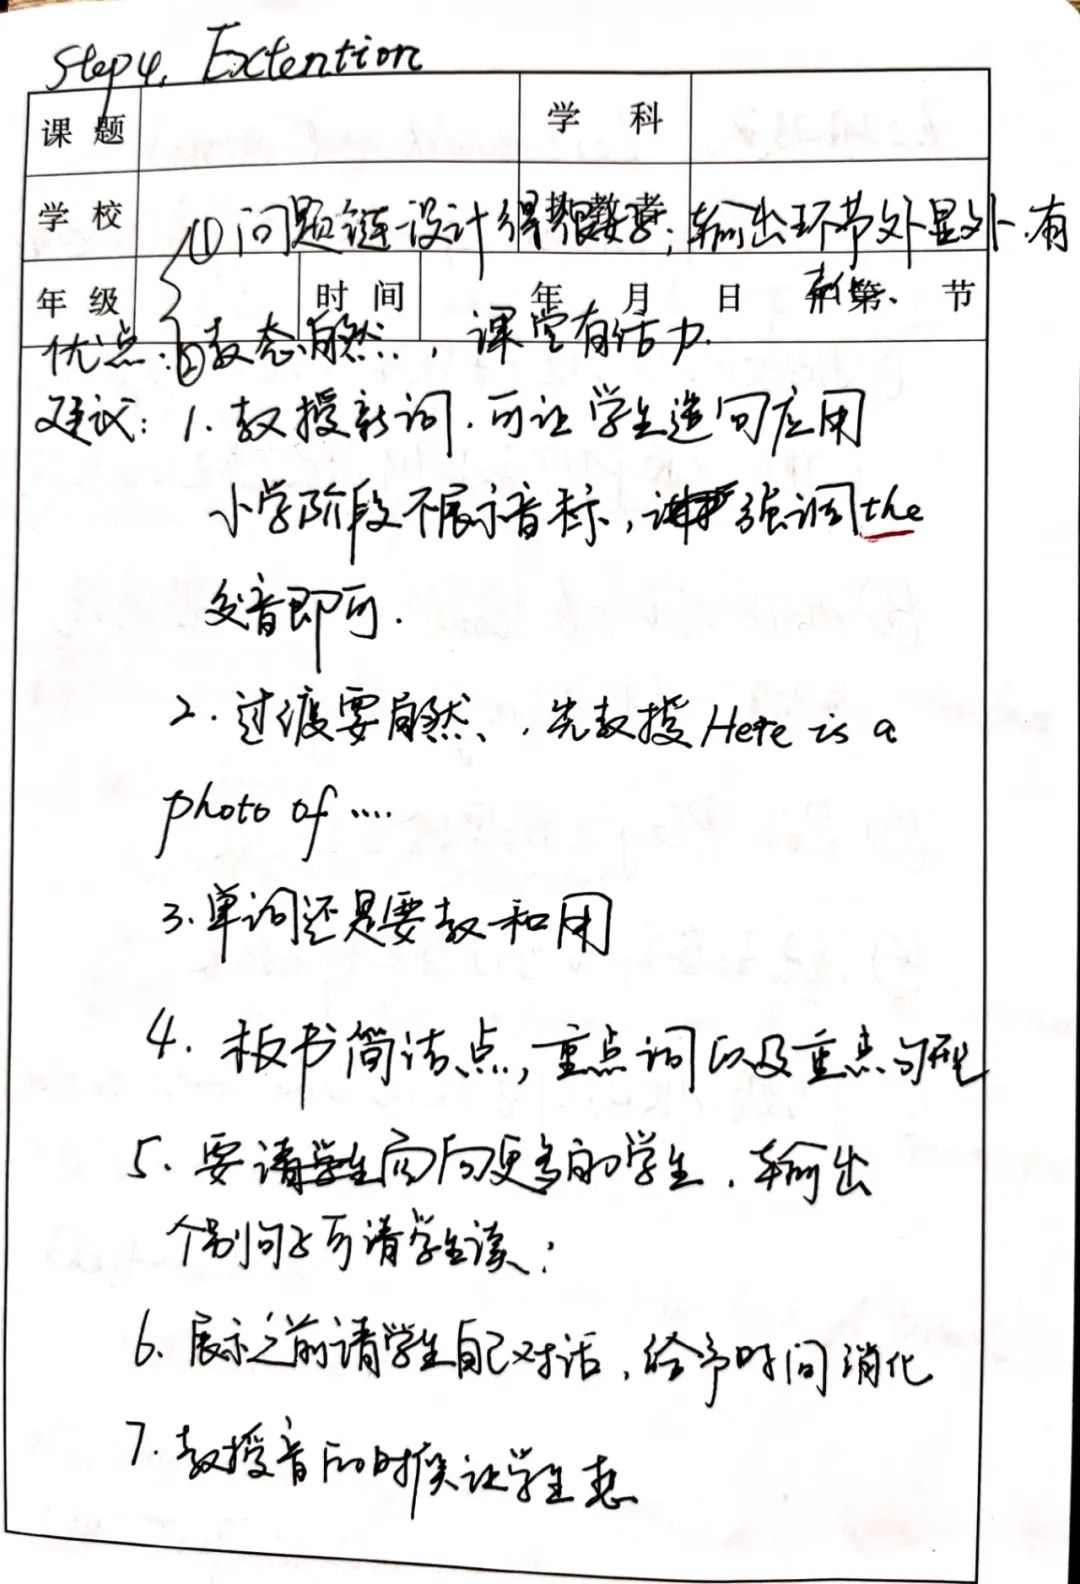 Step4. Extention
课 题 学 科
学 校
①问题链设计得很 输出环节外显外.有
年 级 时 间 年 月 日 第 节
优点:②教态自然,课堂有活力.
建议:1.教授新词.可让学生造句应用
小学阶段不展示音标,讲 强调the
发音即可.
2.过渡要自然、,先教授Here is a
photo of ....
3.单词还是要教和用
4.板书简洁点,重点词以及重点句型
5.要请学生面向更多的学生,输出
个别句子可请学生读;
6.展示之前请学生自己对话,给予时间消化
7.教授音 的时候让学生